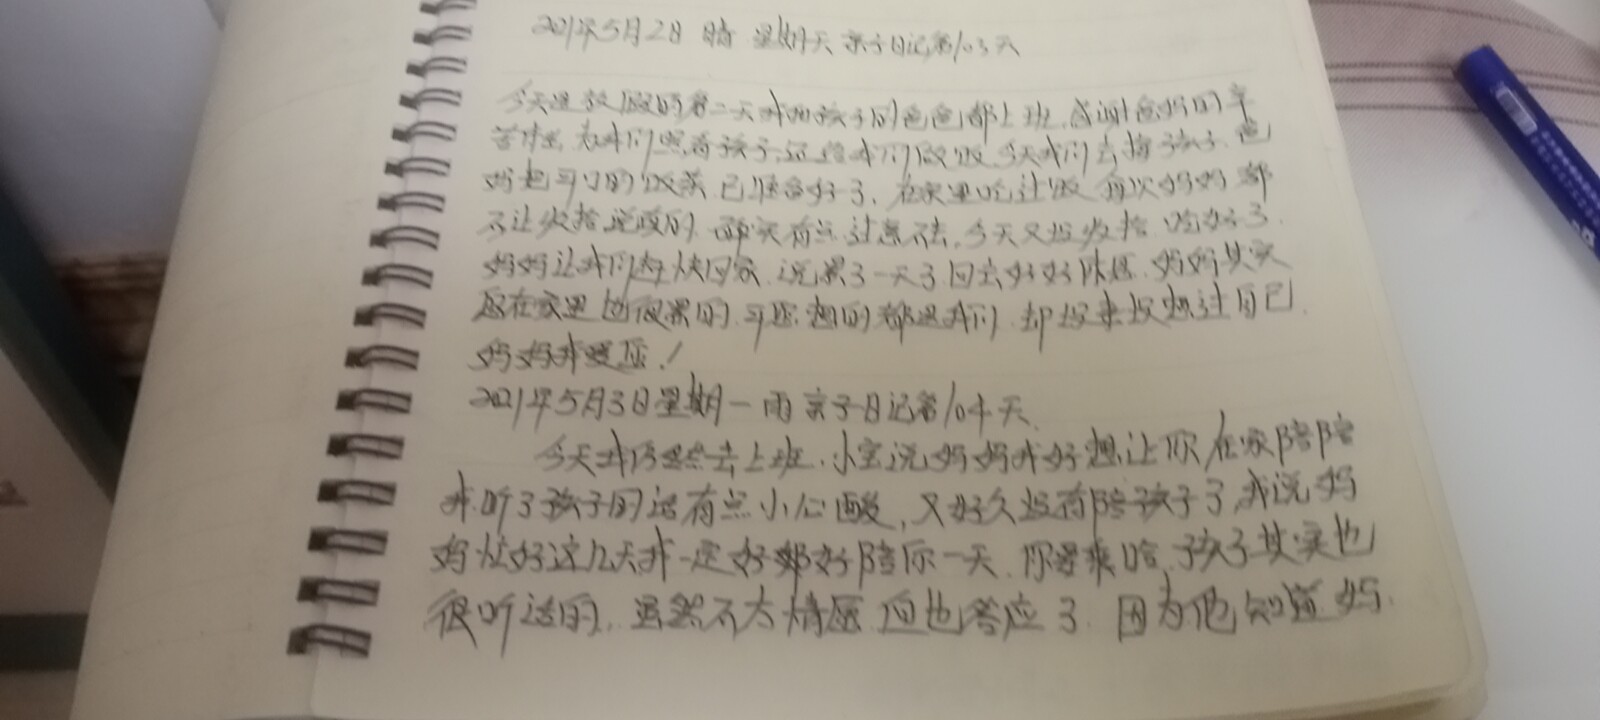 2021年5月2日 晴 星期天 亲子日记第103天
今天是放假的第二天我和孩子的爸爸都上班.感谢爸妈的辛
苦付出,为我们照看孩子,还给我们做饭,今天我们去接孩子.爸
妈把可口的饭菜已准备好了,在家里吃过饭每次妈妈都
不让收拾说啥的,确实有点过意不去,今天又没收拾.吃好了
妈妈让我们赶快回家.说累了一天了回去好好休息.妈妈其实
您在家里也很累的.可您想的都是我们,却从来没想过自己.
妈妈我爱您!
2021年5月3日星期一 雨 亲子日记第104天
今天我仍然去上班.小宝说妈妈我好想让你在家陪陪
我.听了孩子的话有点小心酸,又好久没有陪孩子了,我说妈
妈忙好这几天我一定好好陪你一天.你要乖哈.孩子其实也
很听话的,虽然不大情愿但也答应了.因为他知道妈